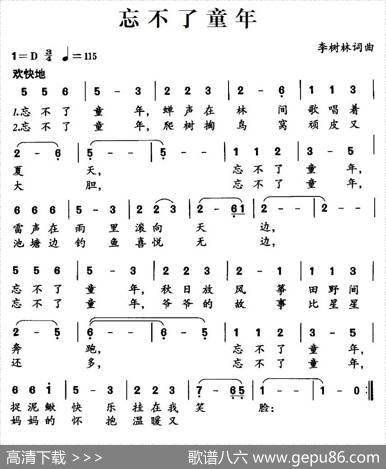 忘不了童年
1=D 3/4 ♩=115
李树林词曲
欢快地
5 5 6 | 5 - 3 | 2 2 3 | 2 - 6 | 1 1 2 |
1.忘不了 童 年，蝉声在 林 间 歌唱着
2.忘不了 童 年，爬树掏 鸟 窝 顽皮又
2 - 6 | 5 - - | 5 - - | 1 1 2 | 3 - 5 |
夏 天， 忘不了 童 年，
大 胆， 忘不了 童 年，
6 6 6 | 5 - 3 | 2 2 3 | 2 - 61 | 2 - - | 2 - - |
雷声在 雨 里 滚向 天 边，
池塘边 钓 鱼 喜悦 无 边，
5 5 6 | 5 - 3 | 2 2 3 | 2 - 6 | 1 1 2 |
忘不了 童 年，秋日放 风 筝 田野间
忘不了 童 年，爷爷的 故 事 比星星
2 - 5 | 6 - - | 6 - - | 1 1 2 | 3 - 5 |
奔 跑， 忘不了 童 年，
还 多， 忘不了 童 年，
6 6 1 | 5 - 3 | 2 1 2 3 | 7 - 65 | 5 - - |
捉泥鳅 快 乐 挂在我 笑 脸：
妈妈的 怀 抱 温暖又
高清下载 >>>
歌谱八六 www.gepu86.com